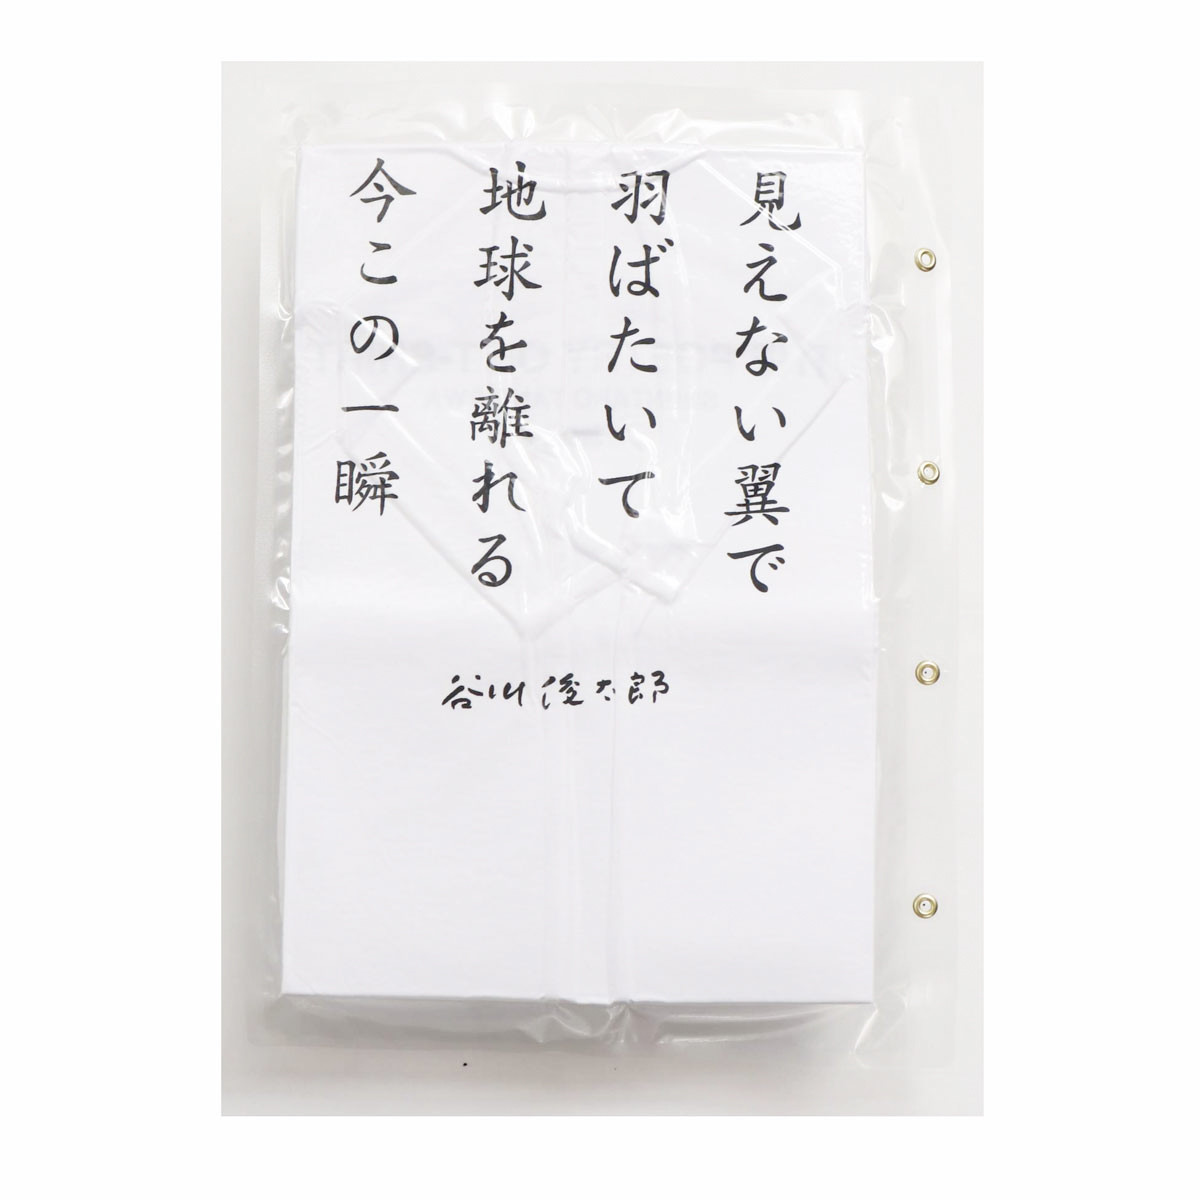 見えない翼で
羽ばたいて
地球を離れる
今この一瞬
谷川俊太郎